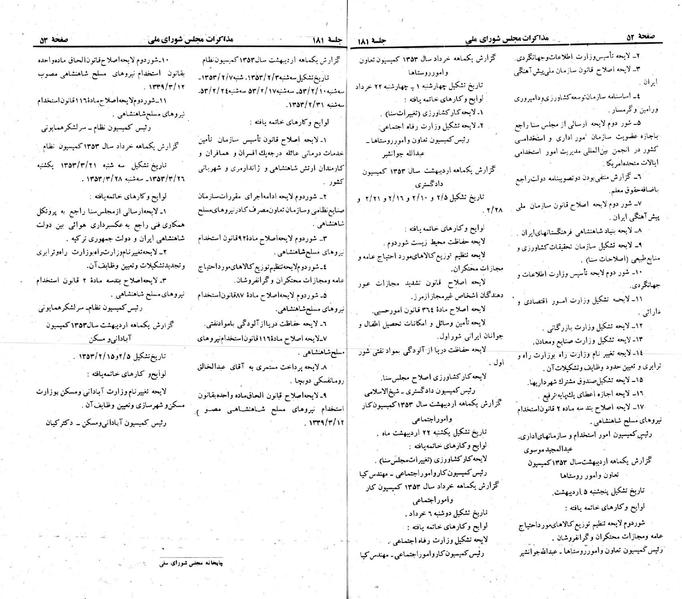 صفحه ۵۲
مذاکرات مجلس شورای ملی
جلسه ۱۸۱
۲ـ لایحه تأسیس وزارت اطلاعات و جهانگردی.
۳ـ لایحه اصلاح قانون سازمان ملی پیش‌آهنگی
ایران .
۴ـ اساسنامه سازمان توسعه کشاورزی و دامپروری
ورامین و گرمسار.
۵ـ شور دوم لایحه ارسالی از مجلس سنا راجع
باجازه عضویت سازمان امور اداری و استخدامی
کشور در انجمن بین‌المللی مدیریت امور استخدامی
ایالات متحده امریکا.
۶ـ گزارش منفی بودن دو تصویبنامه دولت راجع
باضافه حقوق معلم.
۷ـ شور دوم لایحه اصلاح قانون سازمان ملی
پیش‌آهنگی ایران.
۸ـ لایحه بنیاد شاهنشاهی فرهنگستانهای ایران.
۹ـ لایحه تشکیل سازمان تحقیقات کشاورزی و
منابع طبیعی (اصلاحات سنا) .
۱۰ـ شور دوم لایحه تأسیس وزارت اطلاعات و
جهانگردی.
۱۱ـ لایحه تشکیل وزارت امور اقتصادی و
دارائی .
۱۲ـ لایحه تشکیل وزارت بازرگانی .
۱۳ـ لایحه تشکیل وزارت صنایع و معادن.
۱۴ـ لایحه تغییر نام وزارت راه بوزارت راه و
ترابری و تعیین حدود وظایف و تشکیلات آن.
۱۵ـ لایحه تشکیل صندوق مشترک شهرداریها.
۱۶ـ لایحه اجازه اعطای یک پایه ترفیع .
۱۷ـ لایحه بند سه ماده ۲ قانون استخدام
نیروهای مسلح شاهنشاهی.
رئیس کمیسیون امور استخدام و سازمانهای اداری.
عبدالمجید موسوی
گزارش یکماهه اردیبهشت سال ۱۳۵۳ کمیسیون
تعاون و امور روستاها
تاریخ تشکیل پنجشنبه ۵ اردیبهشت.
لوایح و کارهای خاتمه یافته :
شور دوم لایحه تنظیم توزیع کالاهای مورد احتیاج
عامه و مجازات محتکران و گرانفروشان .
رئیس کمیسیون تعاون و امور روستاها ـ عبدالله جوانشیر
گزارش یکماهه خرداد سال ۱۳۵۳ کمیسیون تعاون
و امور روستاها
تاریخ تشکیل چهارشنبه ۱ ـ چهارشنبه ۲۲ خرداد
لوایح و کارهای خاتمه یافته :
۱ـ لایحه کارکشاورزی (تغییرات سنا) .
۲ـ لایحه تشکیل وزارت رفاه اجتماعی .
رئیس کمیسیون تعاون و امور روستاها ـ
عبدالله جوانشیر
گزارش یکماهه اردیبهشت سال ۱۳۵۳ کمیسیون
دادگستری
تاریخ تشکیل ۲/۵ و ۲/۱۰ و ۲/۱۶ و ۲/۲۱ و
۲/۲۸
لوایح و کارهای خاتمه یافته :
لایحه حفاظت محیط زیست شور دوم .
لایحه تنظیم توزیع کالاهای مورد احتیاج عامه و
مجازات محتکران.
لایحه اصلاح قانون تشدید مجازات عبور
دهندگان اشخاص غیر مجاز از مرز.
لایحه اصلاح ماده ۳۶۴ قانون امور حسبی.
لایحه تأمین وسائل و امکانات تحصیل اطفال و
جوانان ایرانی شور اول.
لایحه حفاظت دریا از آلودگی بمواد نفتی شور
اول .
لایحه کارکشاورزی اصلاح مجلس سنا.
رئیس کمیسیون دادگستری ـ شیخ‌الاسلامی
گزارش یکماهه اردیبهشت سال ۱۳۵۳ کمیسیون کار
و امور اجتماعی
تاریخ تشکیل یکشنبه ۲۲ اردیبهشت ماه .
لایحه کارکشاورزی (تغییرات مجلس سنا) .
رئیس کمیسیون کار و امور اجتماعی ـ مهندس کیا
گزارش یکماهه خرداد سال ۱۳۵۳ کمیسیون کار
و امور اجتماعی
تاریخ تشکیل دوشنبه ۶ خرداد .
لوایح و کارهای خاتمه یافته :
لایحه تشکیل وزارت رفاه اجتماعی .
رئیس کمیسیون کار و امور اجتماعی ـ مهندس کیا
جلسه ۱۸۱
مذاکرات مجلس شورای ملی
صفحه ۵۳
گزارش یکماهه اردیبهشت سال ۱۳۵۳ کمیسیون نظام
تاریخ تشکیل سه‌شنبه ۱۳۵۳/۲/۳ـ شنبه ۵۳/۲/۷ـ
سه‌شنبه ۵۳/۲/۱۰ـ سه‌شنبه ۵۳/۲/۱۷ و ۵۳/۲/۲۴ـ
سه‌شنبه ۱۳۵۳/۲/۳۱
لوایح و کارهای خاتمه یافته :
۱ـ لایحه اصلاح قانون تأسیس سازمان تأمین
خدمات درمانی عائله درجه یک افسران و همافران و
کارمندان ارتش شاهنشاهی و ژاندارمری و شهربانی
کشور .
۲ـ شور دوم لایحه ادامه اجرای مقررات سازمان
صنایع نظامی و سازمان تعاون مصرف کادر نیروهای مسلح
شاهنشاهی .
۳ـ شور دوم لایحه اصلاح ماده ۹۲ قانون استخدام
نیروهای مسلح شاهنشاهی.
۴ـ شور دوم لایحه تنظیم توزیع کالاهای مورد احتیاج
عامه و مجازات محتکران و گرانفروشان.
۵ـ شور دوم لایحه اصلاح ماده ۸۷ قانون استخدام
نیروهای مسلح شاهنشاهی.
۶ـ لایحه حفاظت دریا از آلودگی بمواد نفتی.
۷ـ لایحه اصلاح ماده ۱۱۶ قانون استخدام نیروهای
مسلح شاهنشاهی .
۸ـ لایحه پرداخت مستمری به آقای عبدالخالق
رومانفسکی دوبچا .
۹ـ لایحه اصلاح قانون الحاق ماده واحده بقانون
استخدام نیروهای مسلح شاهنشاهی مصوب
۱۳۳۹/۳/۱۲ .
۱۰ـ شور دوم لایحه اصلاح قانون الحاق ماده واحده
بقانون استخدام نیروهای مسلح شاهنشاهی مصوب
۱۳۳۹/۳/۱۲
۱۱ـ شور دوم لایحه اصلاح ماده ۱۱۶ قانون استخدام
نیروهای مسلح شاهنشاهی.
رئیس کمیسیون نظام ـ سرلشکر همایونی
گزارش یکماهه خرداد سال ۱۳۵۳ کمیسیون نظام
تاریخ تشکیل سه شنبه ۱۳۵۳/۳/۲۱ یکشنبه
۱۳۵۳/۳/۲۶ـ سه‌شنبه ۱۳۵۳/۳/۲۸ .
لوایح و کارهای خاتمه یافته :
۱ـ لایحه ارسالی از مجلس سنا راجع به پروتکل
همکاری فنی راجع به عکسبرداری هوائی بین دولت
شاهنشاهی ایران و دولت جمهوری ترکیه .
۲ـ لایحه تغییر نام وزارت راه بوزارت راه و ترابری
و تجدید تشکیلات و تعیین وظایف آن.
۳ـ لایحه اصلاح بند سه ماده ۲ قانون استخدام
نیروهای مسلح شاهنشاهی .
رئیس کمیسیون نظام ـ سرلشکر همایونی
گزارش یکماهه اردیبهشت سال ۱۳۵۳ کمیسیون
آبادانی و مسکن
تاریخ تشکیل ۲/۵ و ۱۳۵۳/۲/۱۵ .
لوایح و کارهای خاتمه یافته :
لایحه تغییر نام وزارت آبادانی و مسکن بوزارت
مسکن و شهرسازی و تعیین وظایف آن.
رئیس کمیسیون آبادانی و مسکن ـ دکتر کیان
چاپخانه مجلس شورای ملی